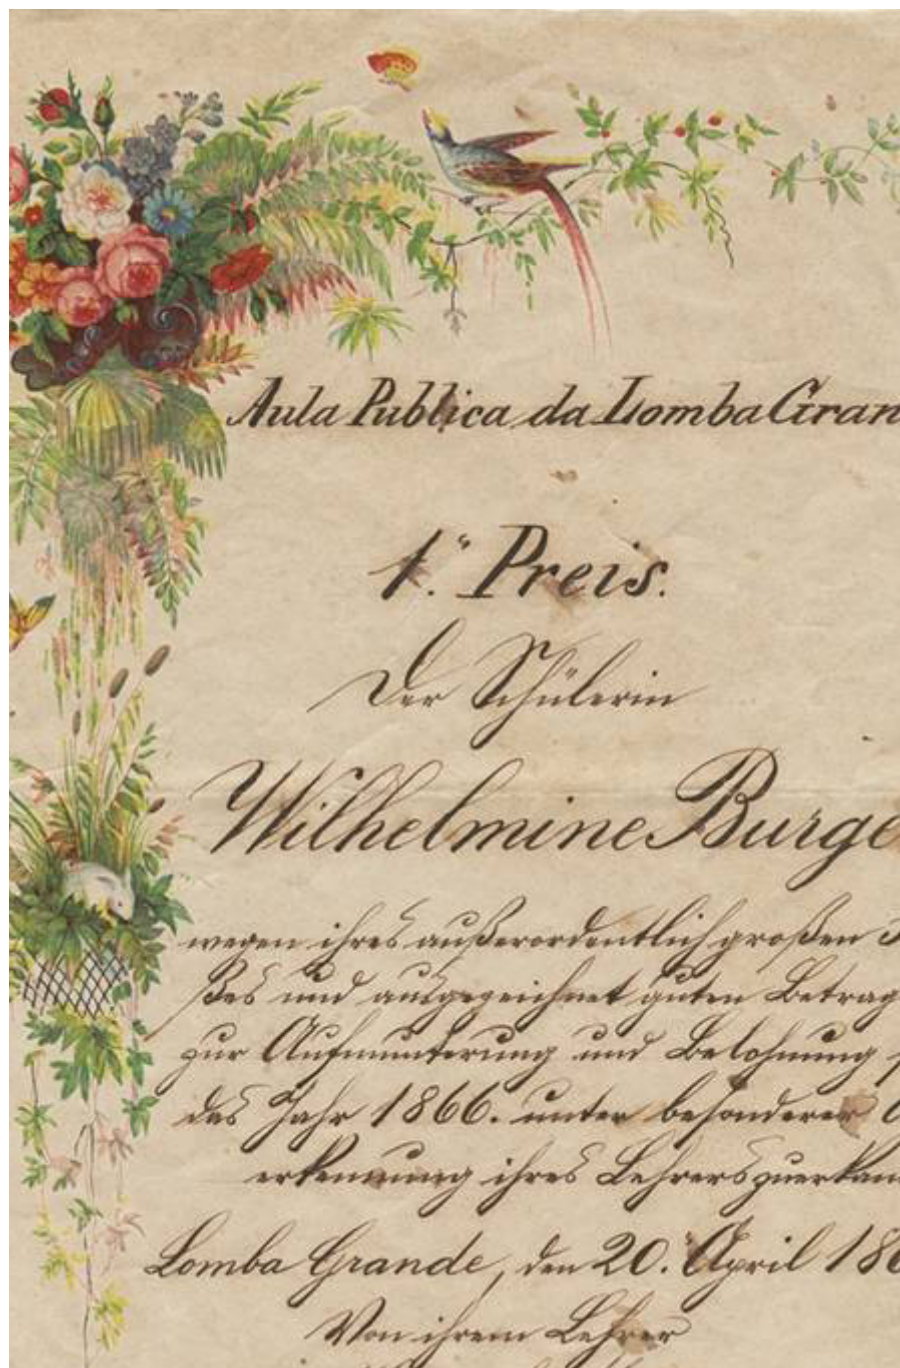 Aula Publica da Lomba Gran
1. Preis.
Der Schülerin
Wilhelmine Burge
wegen ihres außerordentlich großen F
ßes und ausgezeichnet guten Betrag
zur Aufmunterung und Belohnung f
das Jahr 1866. unter besonderer
erkennung ihres Lehrers zuerkan
Lomba Grande, den 20. April 186
Von ihrem Lehrer